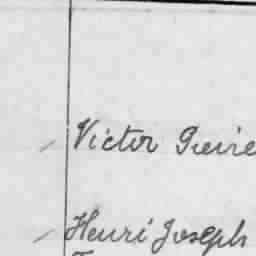 Victor Pierre
Henri Joseph